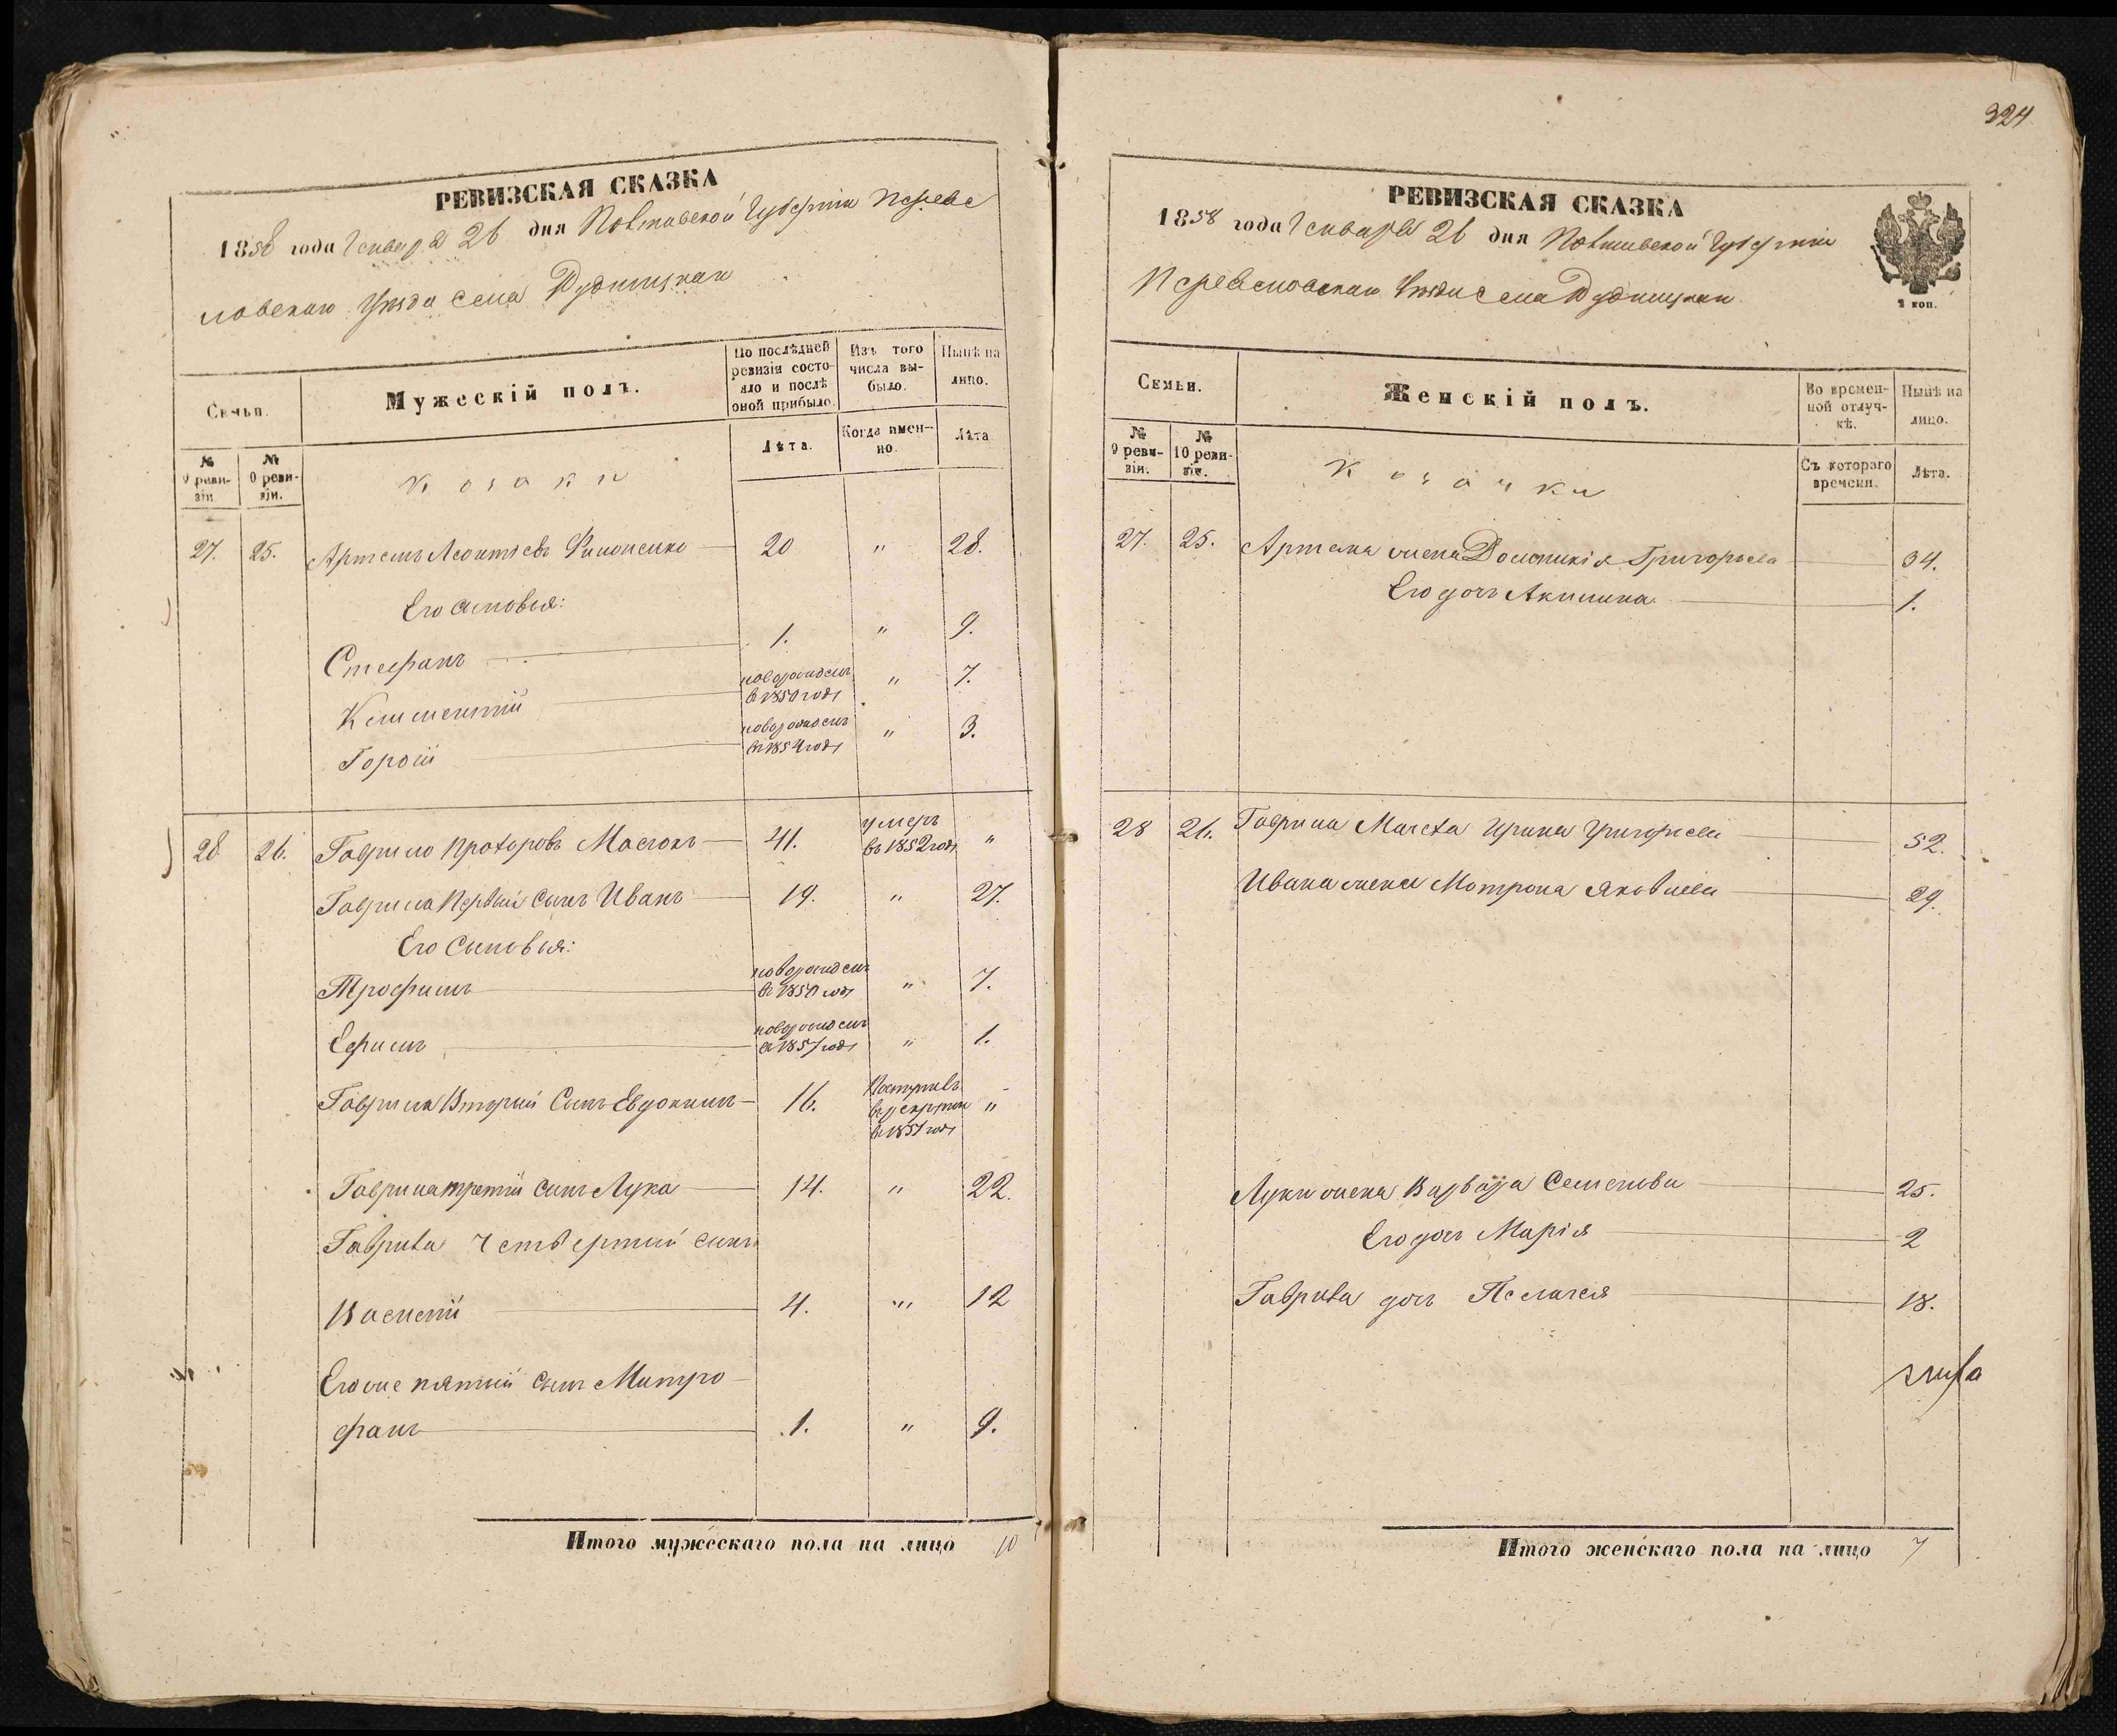 РЕВИЗСКАЯ СКАЗКА
1858 года Генваря 26 дня Полтавской Губерніи Переяс
ловскаго Уезда Села
Семьи.
Мужескій полъ.
По послѣдней ревизіи состояло и послѣ оной прибыло.
Изъ того числа выбыло.
Нынѣ на лицо.
№ 9 ревизіи
№ 10 ревизіи.
Козаки
Лѣта.
Когда именно.
Лѣта
27. 25. Артемъ Леонтіевъ 20 " 28.
Его сыновья:
Стефанъ 1. " 9.
Климентій новорожденъ в 1850 годѣ " 7.
Гордій новорожденъ въ 1854 годѣ " 3.
28 26. Гаврило Прохоровъ Маслохъ 41. умеръ въ 1852 годѣ "
Гаврила Первый сынъ Иванъ 19. " 27.
Его Сыновья:
Трофимъ новорожденъ въ 1850 годѣ " 7.
Ефимъ новорожденъ в 1857 годѣ " 1.
Гаврила Вторый Сынъ Евдокимъ 16. Поступилъ въ рекруты в 1851 годѣ "
Гаврила третій сынъ Лука 14. " 22.
Гаврила Четвертый сынъ
Василій 4. " 12
Его же пятый сынъ Митро
фанъ 1. " 9.
Итого мужескаго пола на лицо 10
324
РЕВИЗСКАЯ СКАЗКА
1858 года Генваря 26 дня Полтавской Губерніи
Переясловскаго Уезда Села
2 коп.
Семьи.
Женскій полъ.
Во временной отлучкѣ.
Нынѣ на лицо.
№ 9 ревизіи.
№ 10 ревизіи.
Козачки
Съ котораго времени.
Лѣта.
27. 25. Артема жена Домникія Григорьева 34.
Его дочь Акилина 1.
28 26. Гаврила Ирина Григорьева 52.
Ивана жена Мотрона Яковлева 29.
Луки жена Варвара Семенова 25.
Его дочь Марія 2
Гаврила дочь Пелагея 18.
Итого женскаго пола на лицо 7